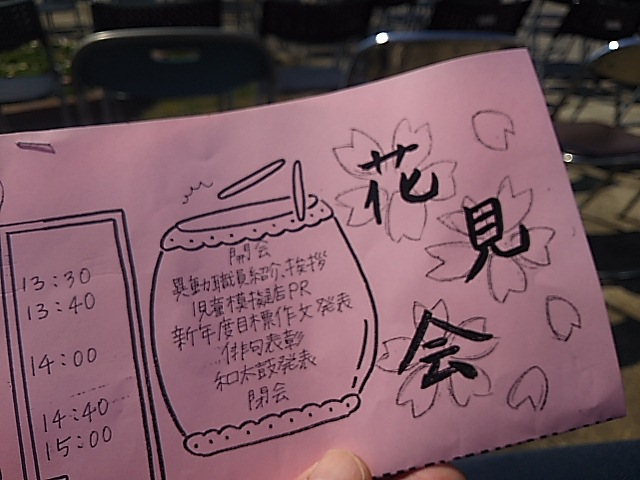 花見会
開会
異動職員紹介、挨拶
児童模擬店PR
新年度目標作文発表
俳句表彰
和太鼓発表
閉会
13:30
13:40
14:00
14:40
15:00